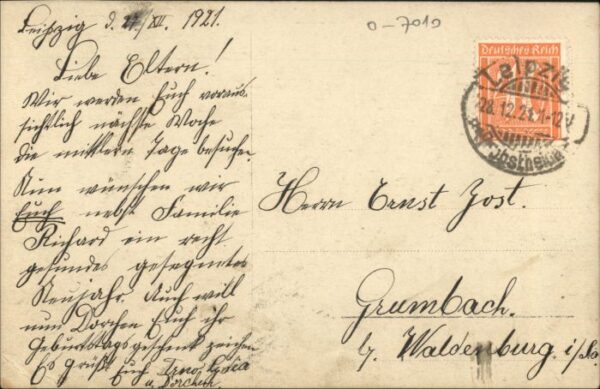 Leipzig d. 27/XII. 1921.
Liebe Eltern!
Wir werden Euch voraus-
sichtlich nächste Woche
die mittlern Tage besuchen.
Nun wünschen wir
Euch nebst Familie
Richard ein recht
gesundes gesegnetes
Neujahr. Auch will
nun Dorchen Euch ihr
Geburtstagsgeschenk zeigen
Es grüßt Euch
u. Dorchen
0-7010
Deutsches Reich
Leipzig
28.12.21.11-12V
Herrn Ernst Jost.
Grumbach.
b/ Waldenburg. i/Sa.